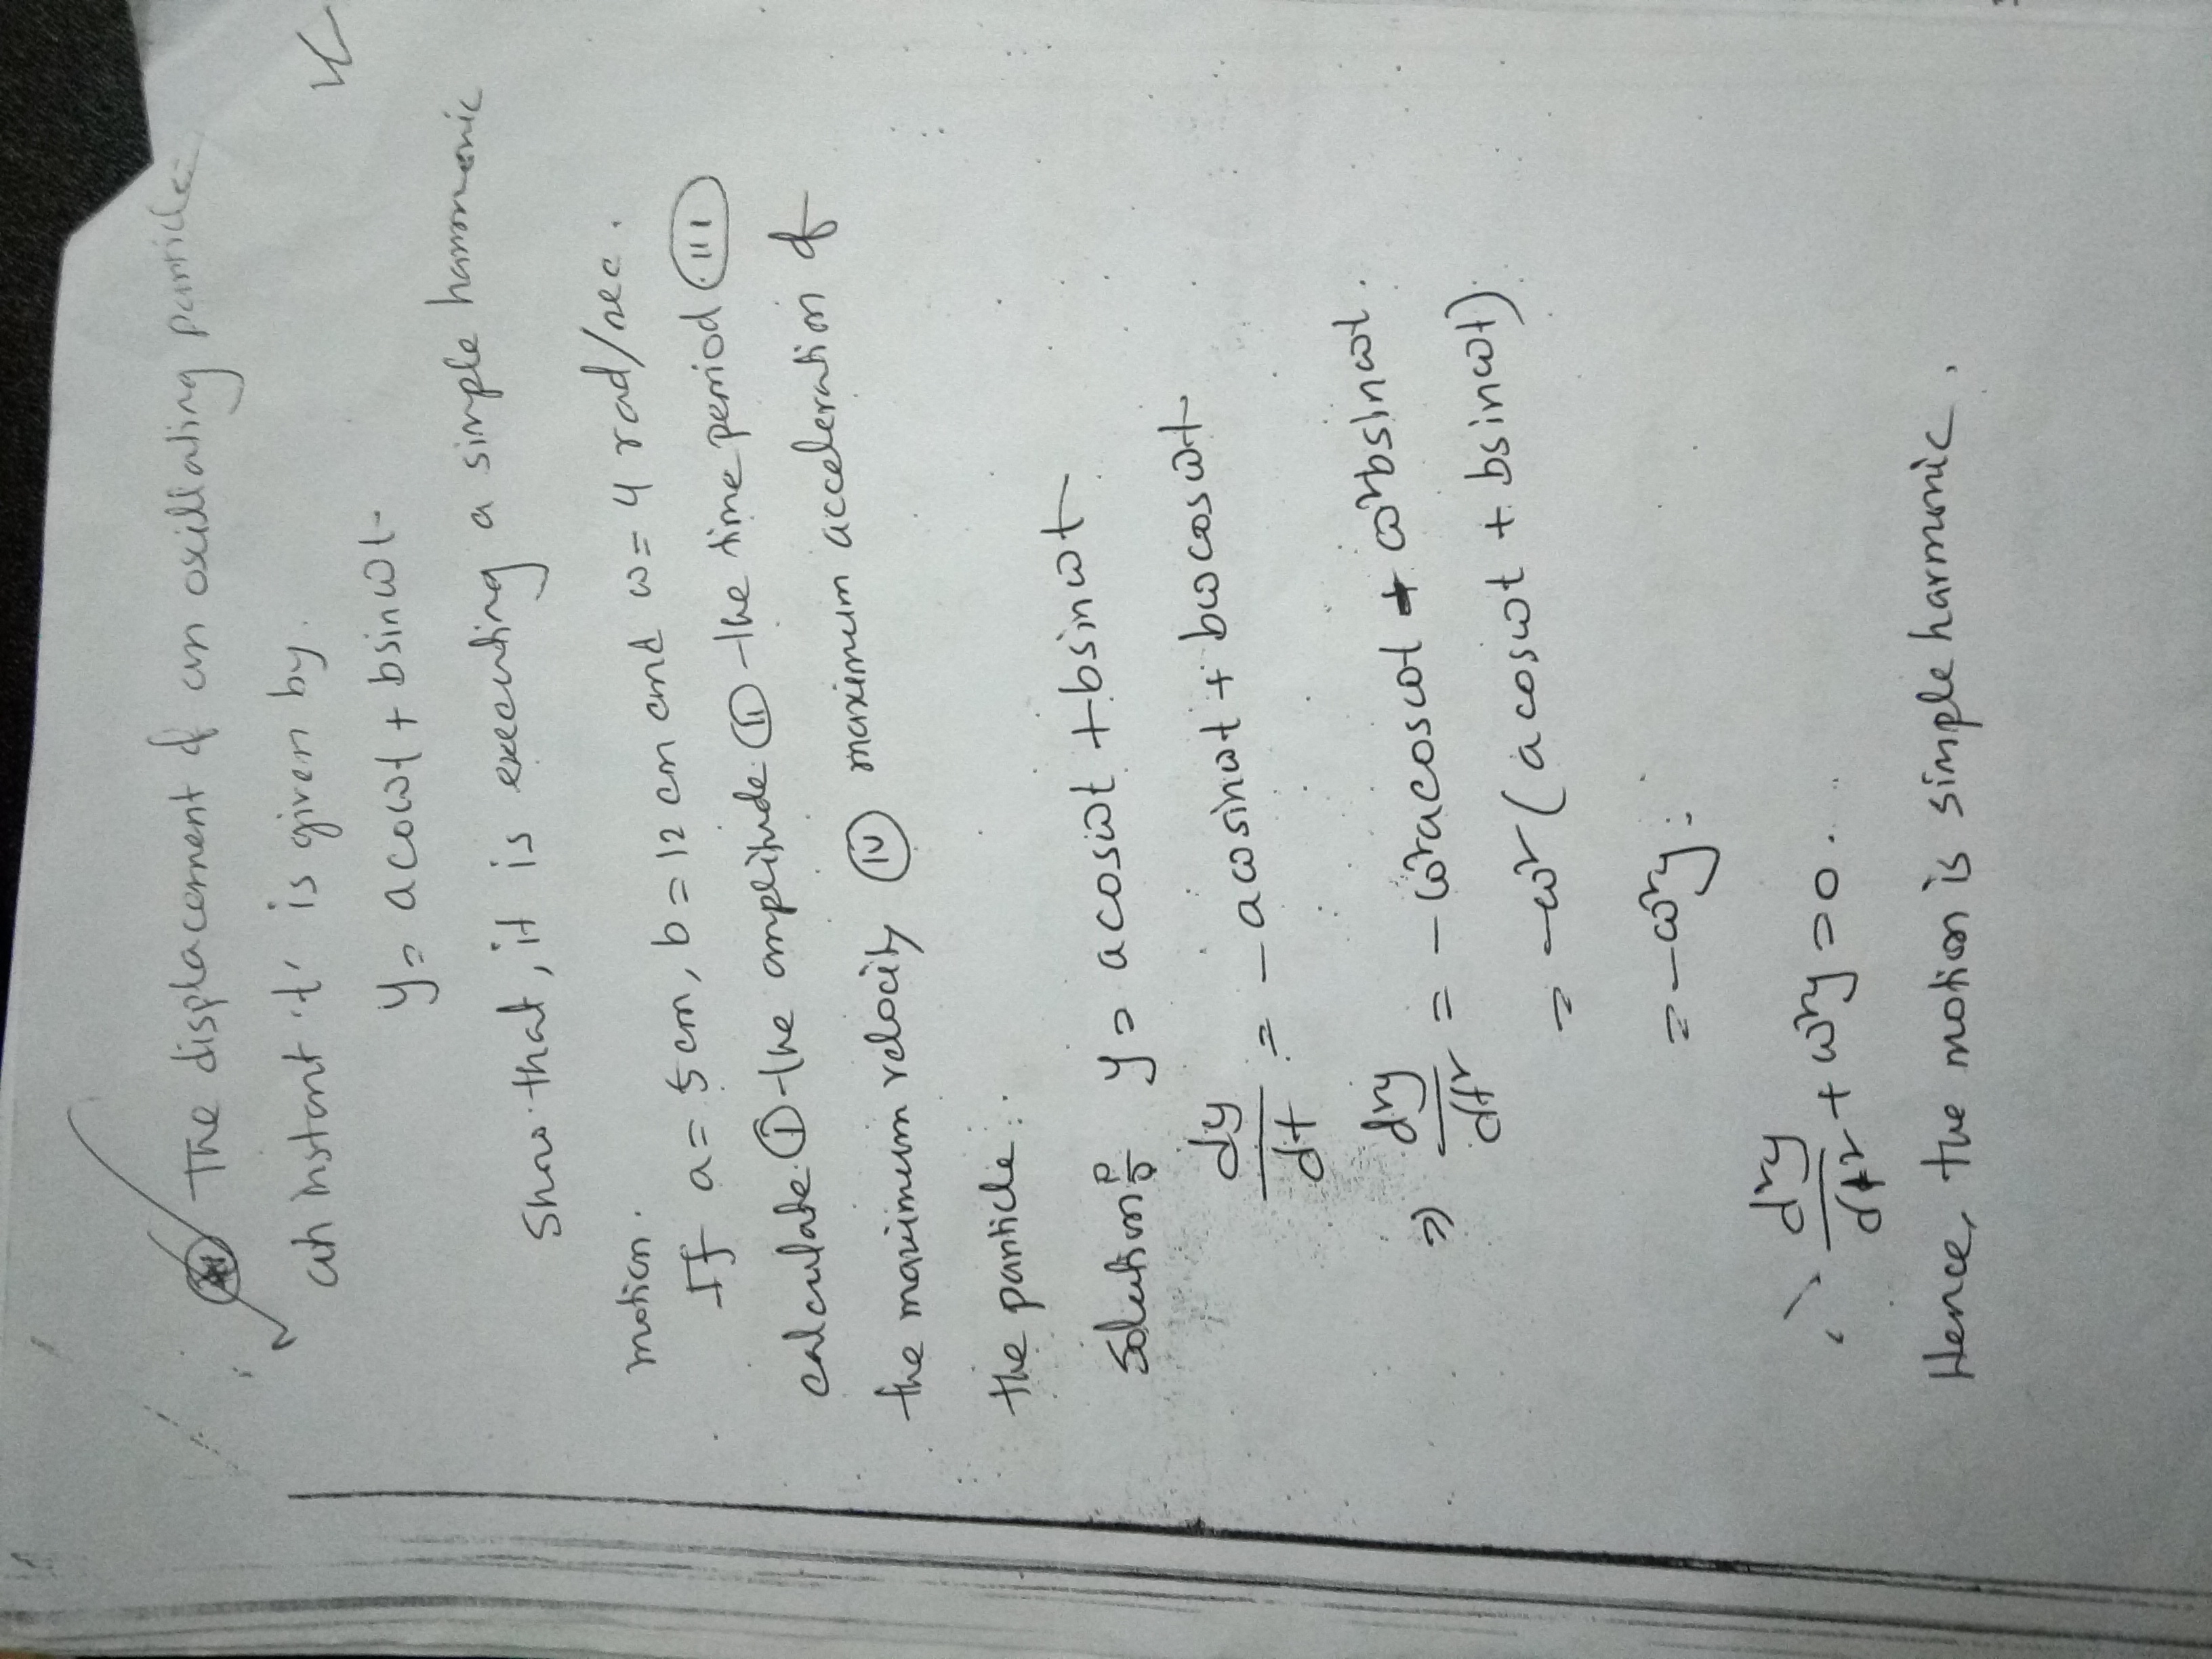 The displacement of an oscillating particle
at instant 't' is given by.
y = a coωt + b sinωt
Show that, it is executing a simple harmonic
motion.
If a = 5 cm, b = 12 cm and ω = 4 rad/sec.
calculate (I) the amplitude (II) the time period (III)
the maximum velocity (IV) maximum acceleration of
the particle.
Solution: y = a cosωt + b sinωt
dy/dt = - aω sinωt + bω cosωt
⇒ d²y/dt² = - ω²a cosωt - ω²b sinωt.
= -ω² (a cosωt + b sinωt)
= -ω²y.
∴ d²y/dt² + ω²y = 0.
Hence, the motion is simple harmonic.